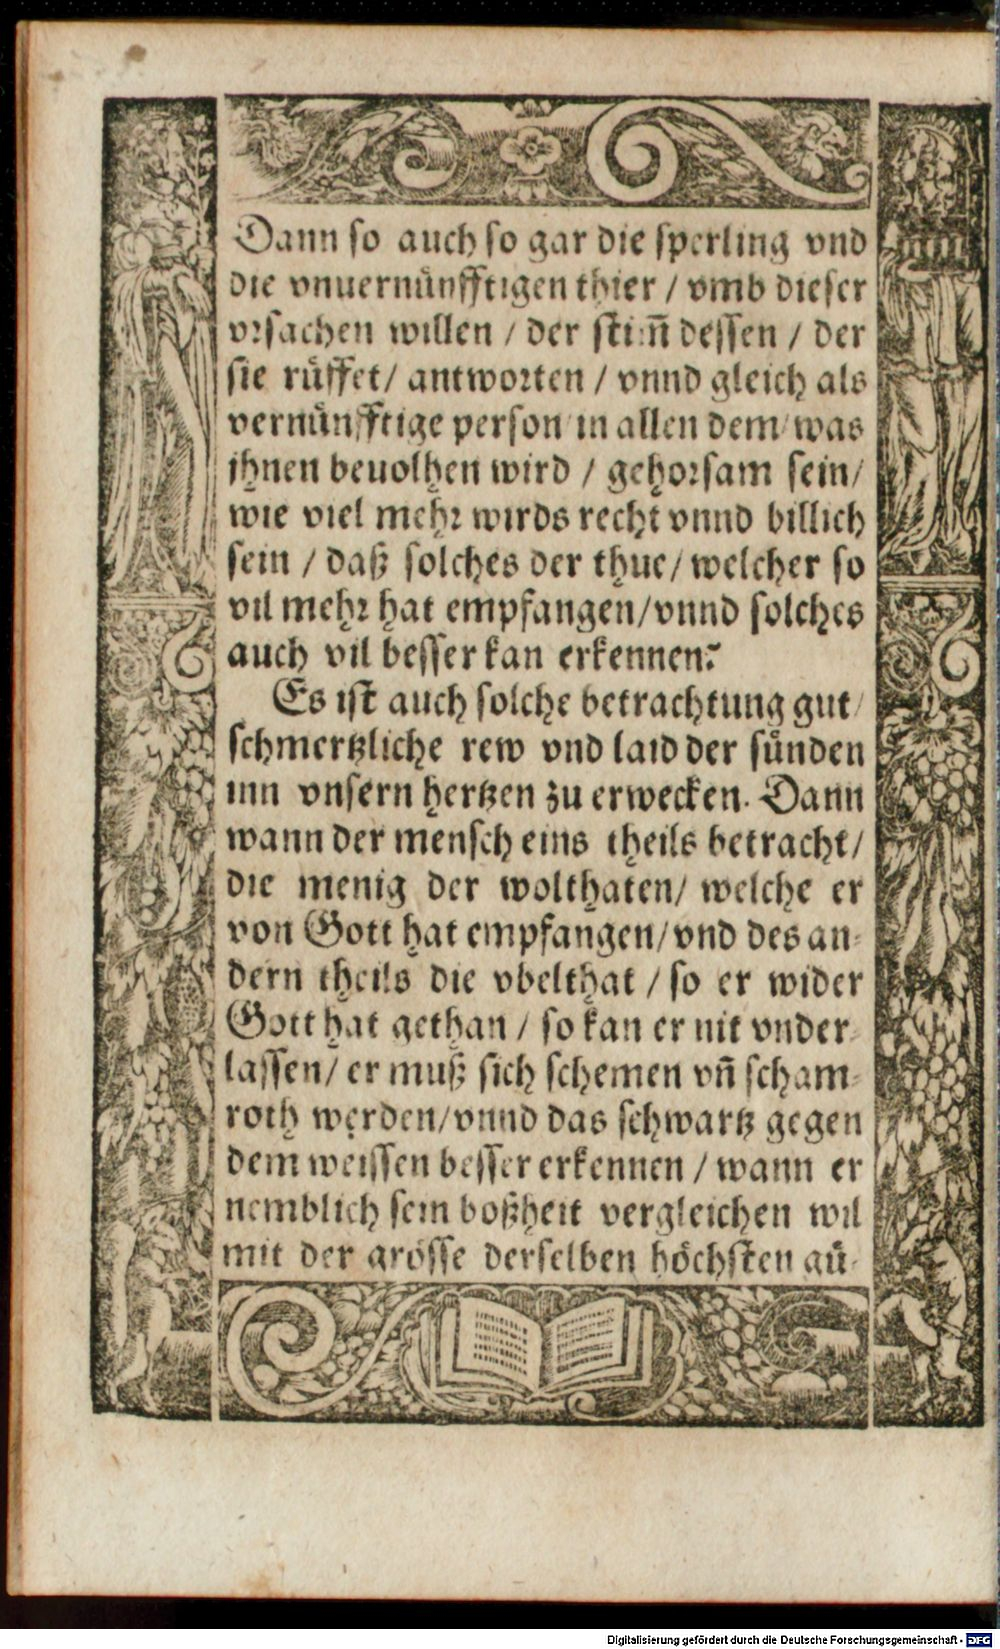 Dann so auch so gar die sperling vnd
die vnuernünfftigen thier / vmb dieser
vrsachen willen / der stim̄ dessen / der
sie rüffet / antworten / vnnd gleich als
vernünfftige person in allen dem was
jhnen beuolhen wird / gehorsam sein /
wie viel mehr wirds recht vnnd billich
sein / daß solches der thue / welcher so
vil mehr hat empfangen / vnnd solches
auch vil besser kan erkennen?
Es ist auch solche betrachtung gut /
schmertzliche rew vnd laid der sünden
inn vnsern hertzen zu erwecken. Dann
wann der mensch eins theils betracht /
die menig der wolthaten / welche er
von Gott hat empfangen / vnd des an-
dern theils die vbelthat / so er wider
Gott hat gethan / so kan er nit vnder-
lassen / er muß sich schemen vn̄ scham-
roth werden / vnnd das schwartz gegen
dem weissen besser erkennen / wann er
nemblich sein boßheit vergleichen wil
mit der grösse derselben höchsten gü-
Digitalisierung gefördert durch die Deutsche Forschungsgemeinschaft - DFG